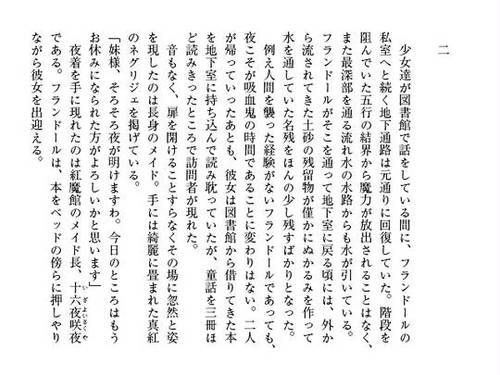 二
少女達が図書館で話をしている間に、フランドールの
私室へと続く地下通路は元通りに回復していた。階段を
阻んでいた五行の結界から魔力が放出されることはなく、
また最深部を通る流れ水の水路からも水が引いている。
フランドールがそこを通って地下室に戻る頃には、外か
ら流されてきた土砂の残留物が僅かにぬかるみを作って
水を通していた名残をほんの少し残すばかりとなった。
例え人間を襲った経験がないフランドールであっても、
夜こそが吸血鬼の時間であることに変わりはない。二人
が帰っていったあとも、彼女は図書館から借りてきた本
を地下室に持ち込んで読み耽っていたが、童話を三冊ほ
ど読みきったところで訪問者が現れた。
音もなく、扉を開けることすらなくその場に忽然と姿
を現したのは長身のメイド。手には綺麗に畳まれた真紅
のネグリジェを掲げている。
「妹様、そろそろ夜が明けますわ。今日のところはもう
お休みになられた方がよろしいかと思います」
夜着を手に現れたのは紅魔館のメイド長、十六夜咲夜
いざよいさくや
である。フランドールは、本をベッドの傍らに押しやり
ながら彼女を出迎える。